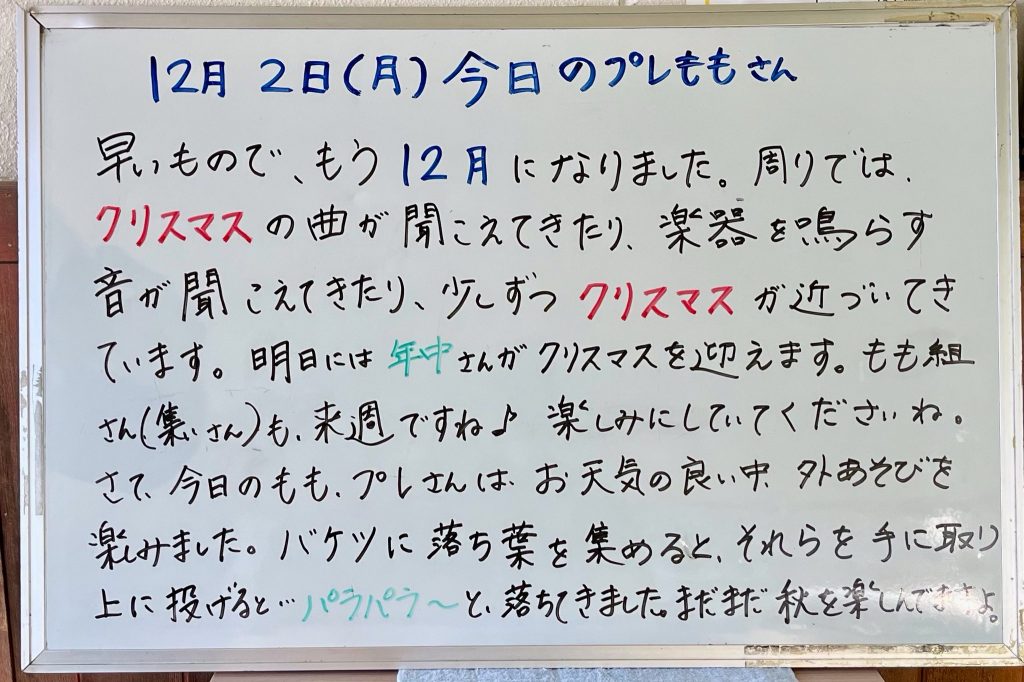 12月 2日(月)今日のプレももさん
早いもので、もう12月になりました。周りでは、
クリスマスの曲が聞こえてきたり、楽器を鳴らす
音が聞こえてきたり、少しずつクリスマスが近づいてき
ています。明日には年中さんがクリスマスを迎えます。もも組
さん(集いさん)も、来週ですね♪ 楽しみにしていてくださいね。
さて、今日のもも、プレさんは、お天気の良い中、外あそびを
楽しみました。バケツに落ち葉を集めると、それらを手に取り
上に投げると…パラパラ〜と、落ちてきました。まだまだ秋を楽しんでますよ。